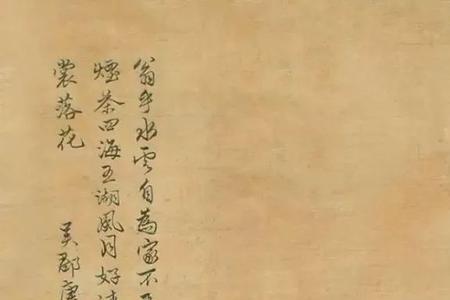 翁乎水雲自為家不
煙茶四海五湖風月好
裳落花
吳郡唐